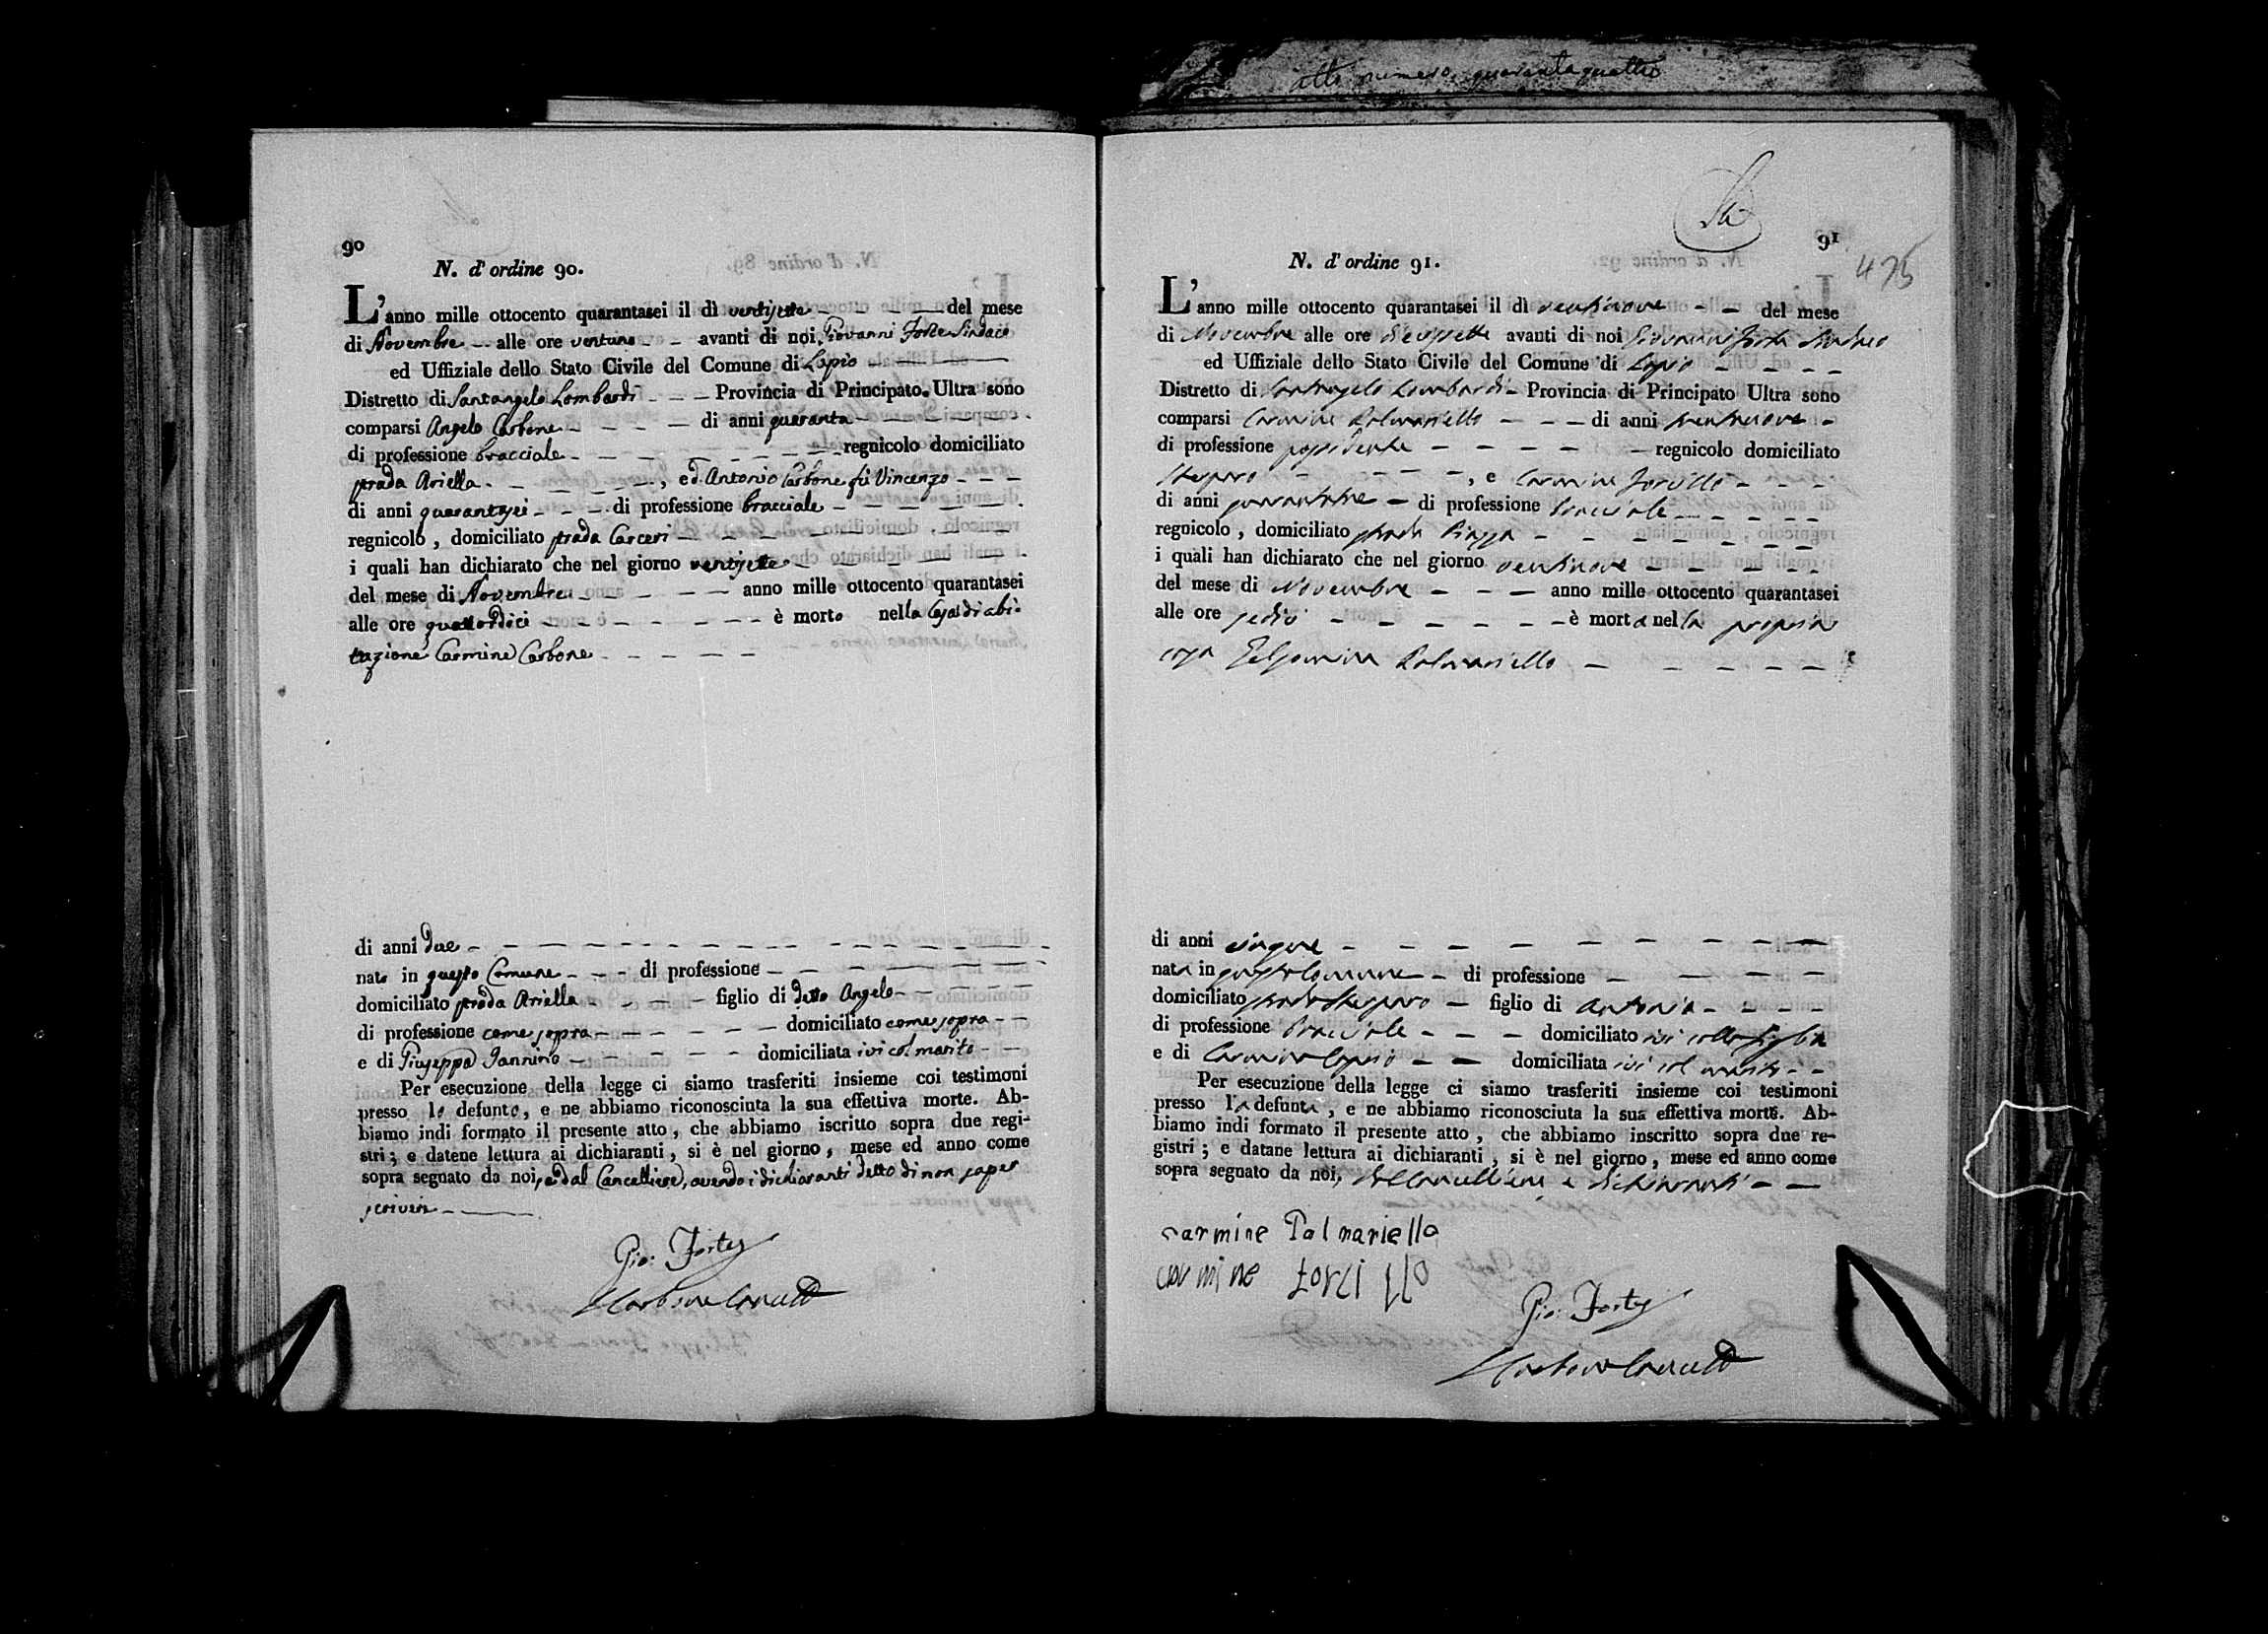 atto numero quarantaquattro
90
N. d' ordine 90.
L'anno mille ottocento quarantasei il dì ventisette del mese
di Novembre alle ore ventuno avanti di noi Giovanni Forte Sindaco
ed Uffiziale dello Stato Civile del Comune di Lapio
Distretto di Santangelo Lombardi Provincia di Principato Ultra sono
comparsi Angelo Carbone di anni quaranta
di professione bracciale regnicolo domiciliato
strada Ariella , ed Antonio Carbone fu Vincenzo
di anni quarantasei di professione bracciale
regnicolo , domiciliato strada Carceri
i quali han dichiarato che nel giorno ventisette
del mese di Novembre anno mille ottocento quarantasei
alle ore quattordici è morto nella Casa di abi=
tazione Carmine Carbone
di anni due
nato in questo Comune di professione
domiciliato strada Ariella figlio di detto Angelo
di professione come sopra domiciliato come sopra
e di Giuseppa Iannino domiciliata ivi col marito
Per esecuzione della legge ci siamo trasferiti insieme coi testimoni
presso lo defunto, e ne abbiamo riconosciuta la sua effettiva morte. Ab-
biamo indi formato il presente atto , che abbiamo iscritto sopra due regi-
stri ; e datene lettura ai dichiaranti , si è nel giorno , mese ed anno come
sopra segnato da noi, e dal Cancelliere, avendo i dichiaranti detto di non saper
scrivere
Gio: Forte
Carbone
91
475
N. d' ordine 91.
L'anno mille ottocento quarantasei il dì ventinove del mese
di Novembre alle ore diecissette avanti di noi Giovanni Forte Sindaco
ed Uffiziale dello Stato Civile del Comune di Lapio
Distretto di Santangelo Lombardi Provincia di Principato Ultra sono
comparsi Carmine Palmariello di anni trentanove
di professione possidente regnicolo domiciliato
, e Carmine Forcillo
di anni quarantatre di professione bracciale
regnicolo , domiciliato strada Piazza
i quali han dichiarato che nel giorno ventinove
del mese di Novembre anno mille ottocento quarantasei
alle ore sedici è morta nella propria
casa Gelsomina Palmariello
di anni cinque
nata in questo Comune di professione
domiciliato strada figlio di Antonio
di professione bracciale domiciliato ivi colla figlia
e di domiciliata ivi col marito
Per esecuzione della legge ci siamo trasferiti insieme coi testimoni
presso la defunta , e ne abbiamo riconosciuta la sua effettiva morte. Ab-
biamo indi formato il presente atto , che abbiamo inscritto sopra due re-
gistri ; e datane lettura ai dichiaranti , si è nel giorno , mese ed anno come
sopra segnato da noi, dal Cancelliere e dichiaranti
carmine Palmariello
carmine forcillo
Gio: Forte
Carbone